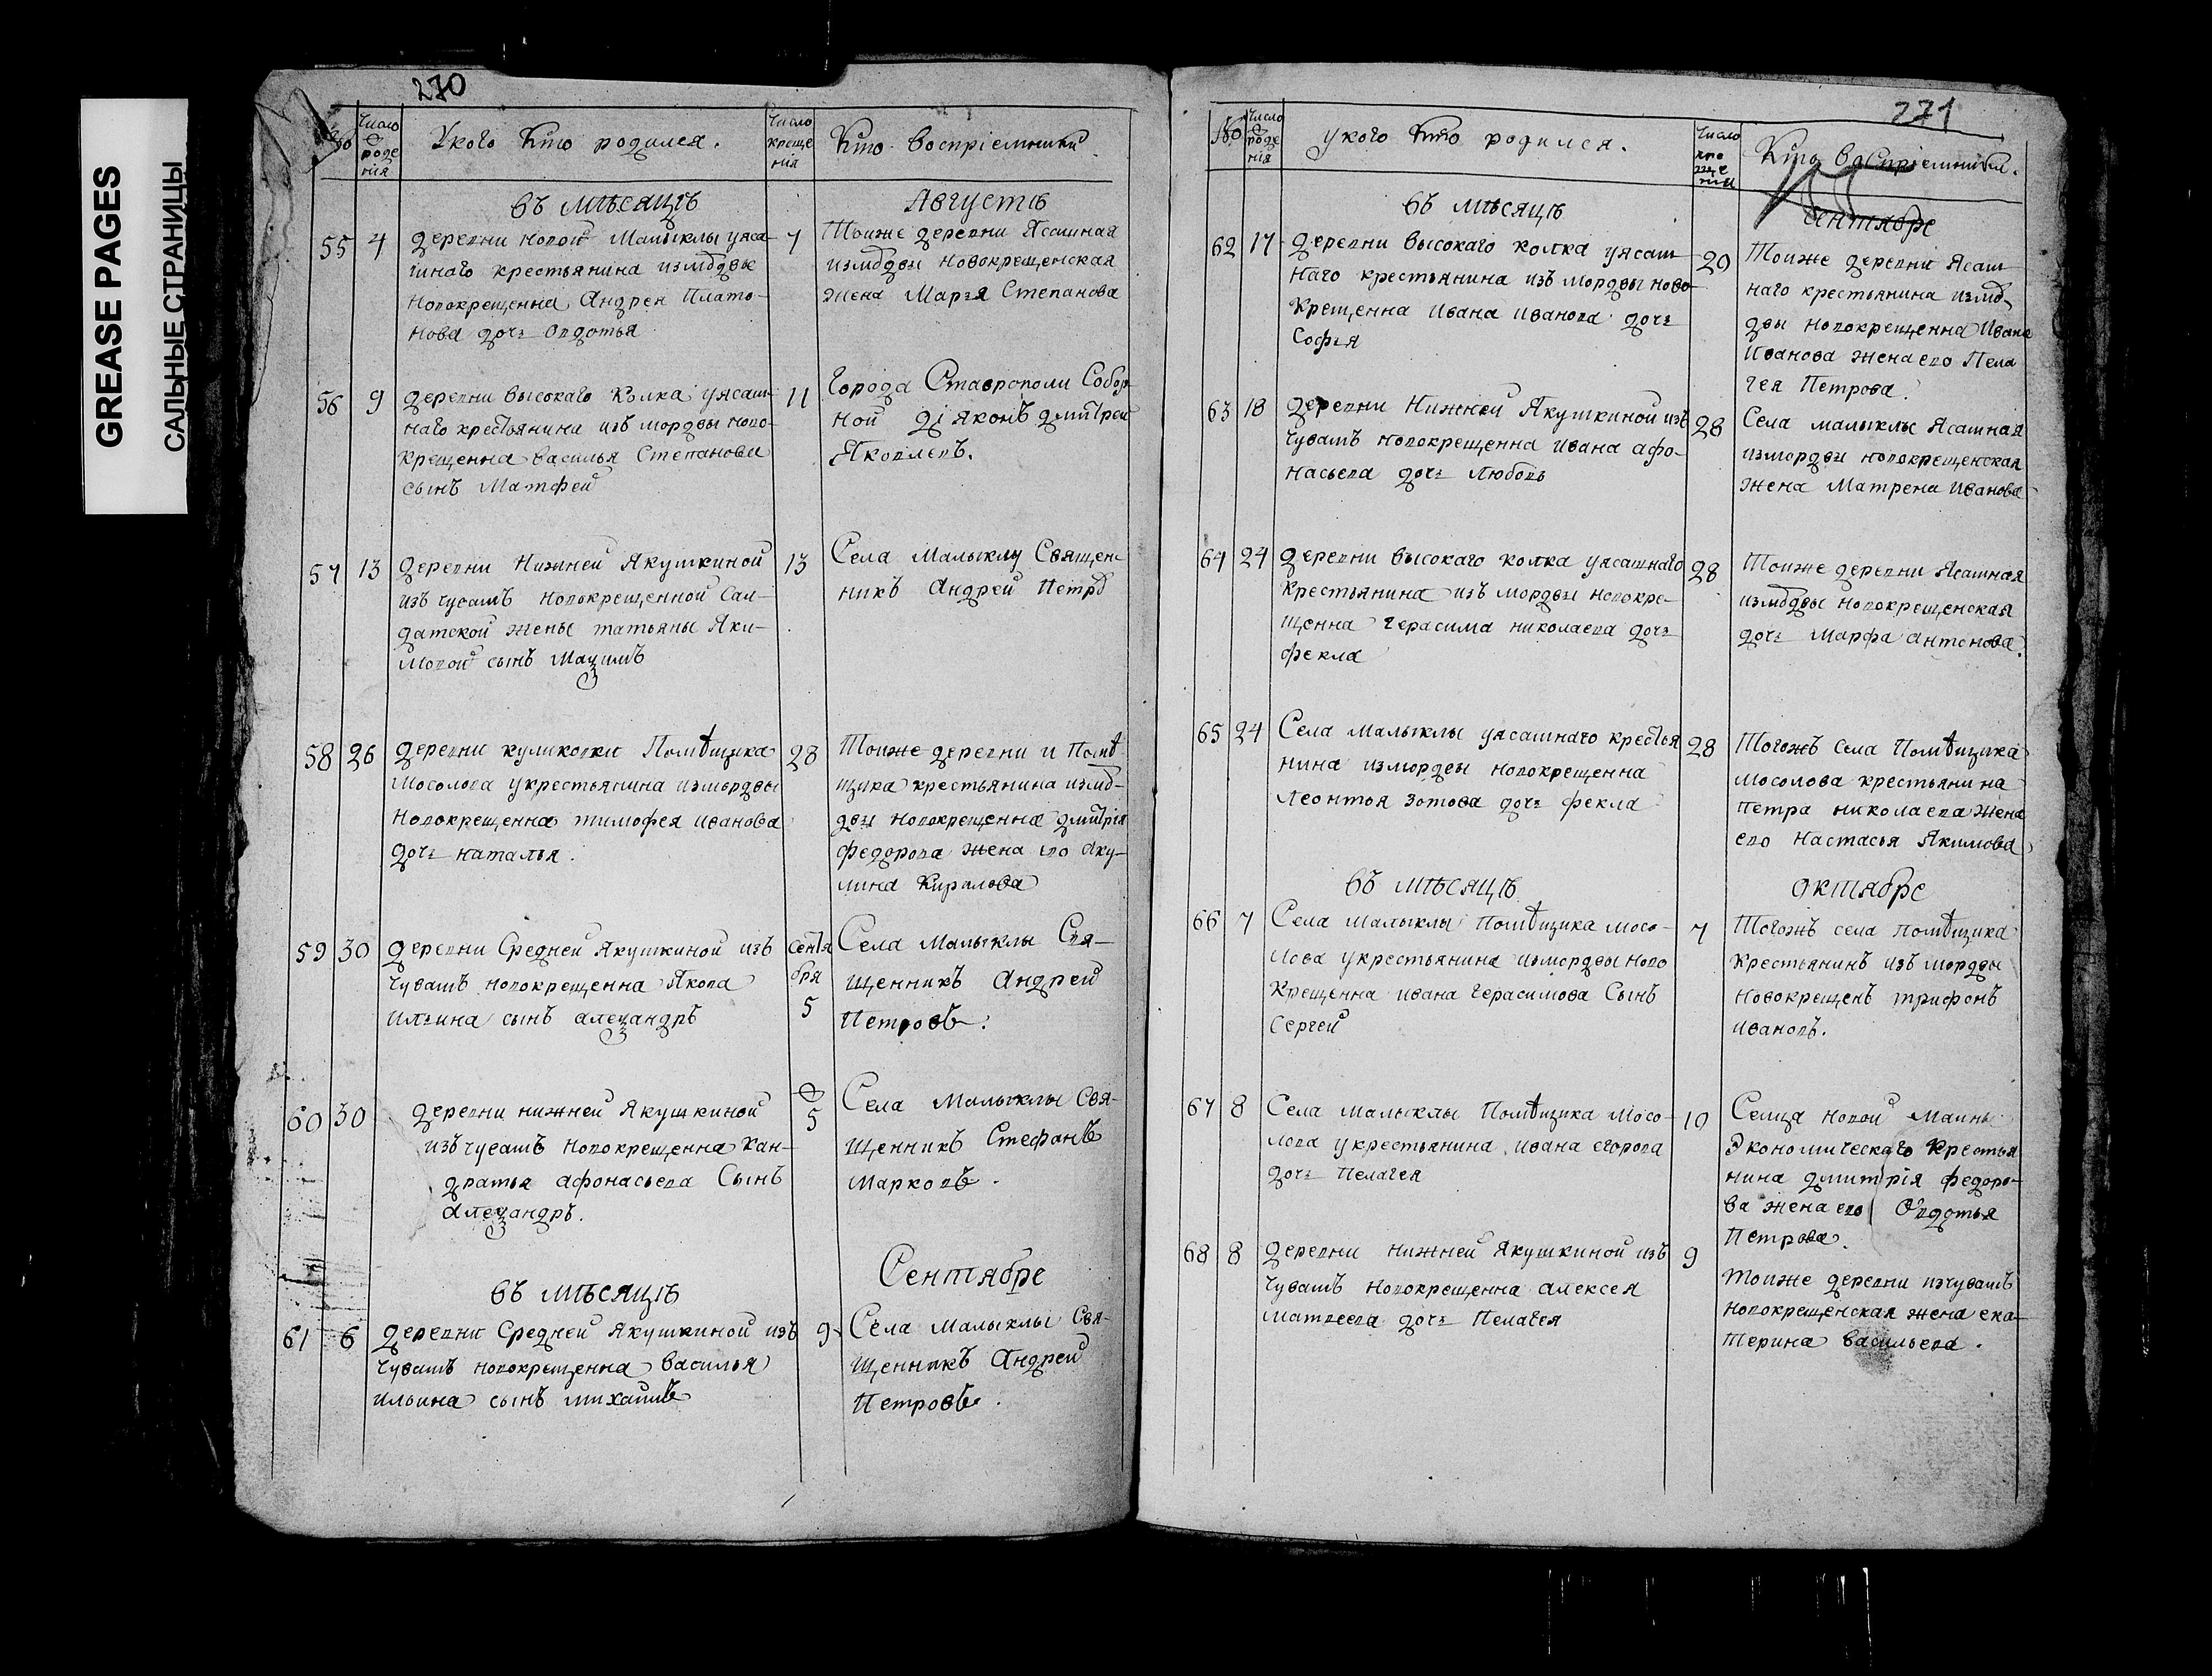 GREASE PAGES
САЛЬНЫЕ СТРАНИЦЫ
270
№
Число роде нія
Укого кто родился.
Число креще нія
Кто воспріемники
въ мѣсяцѣ
Августѣ
55
4
деревни новой Малыклы уяса
шнаго крестьянина измордвы
новокрещенна Андрея Плато-
нова дочь Овдотья
7
Тоиже деревни Ясашная
измордвы новокрещенская
жена Марья Степанова
56
9
деревни высокаго колка уясаш-
наго крестьянина изъ мордвы ново-
крещенна василья Степанова
сынъ Матфей
11
Города Ставрополи Собор-
ной діяконъ дмитрей
Яковлевъ.
57
13
деревни Нижней Якушкиной
изъ чувашъ новокрещенной Сал-
датской жены татьяны Яки-
мовой сынъ Маѯимъ
13
Села Малыклы Священ-
никъ Андрей Петро
58
26
деревни куликовки Помѣщика
Мосолова укрестьянина измордвы
Новокрещенна тимофея иванова
дочь наталья.
28
Тоиже деревни и Помѣ-
щика крестьянина измор-
двы новокрещенна дмитрія
федорова жена его Аку-
лина Кирилова
59
30
деревни Средней Якушкиной изъ
чувашъ новокрещенна Якова
ильина сынъ алеѯандръ
Сентя
бря
5
Села Малыклы Свя-
щенникъ Андрей
Петровъ.
60
30
деревни нижней Якушкиной
изъ чувашъ новокрещенна кан-
дратья афонасьева Сынъ
алеѯандръ.
5
Села Малыклы Свя-
щенникъ Стефанъ
Марковъ.
въ мѣсяцѣ
Сентябре
61
6
деревни Средней Якушкиной изъ
чувашъ новокрещенна василья
ильина сынъ михаилъ
9
Села Малыклы Свя-
щенникъ Андрей
Петровъ.
271
№
Число роде нія
укого кто родился.
Число кре ще нія
Кто воспріемники.
въ мѣсяцѣ
Сентябре
62
17
деревни высокаго колка уясаш
наго крестьянина изъ мордвы ново-
крещенна ивана иванова дочь
Софья
20
Тоиже деревни Ясаш-
наго крестьянина измор-
двы новокрещенна Ивана
Иванова жена его Пела
гея Петрова.
63
18
деревни Нижней Якушкиной изъ
чувашъ новокрещенна ивана афо-
насьева дочь Любовь
28
Села малыклы Ясашная
измордвы новокрещенская
жена Матрена Иванова
64
24
деревни высокаго колка уясашнаго
крестьянина изъ мордвы новокре-
щенна герасима николаева дочь
фекла
28
Тоиже деревни Ясашная
измордвы новокрещенская
дочь Марфа антонова.
65
24
Села Малыклы уясашнаго крестья
нина измордвы новокрещенна
Леонтья Зотова дочь фекла
28
Тогожъ Села Помѣщика
мосолова крестьянина
петра николаева жена
его Настасья Якимова
въ мѣсяцѣ
октябре
66
7
Села малыклы Помѣщика мосо-
лова укрестьянина измордвы ново
крещенна ивана герасимова Сынъ
Сергей
7
Тогожъ села помѣщика
крестьянинъ изъ мордвы
новокрещенъ трифонъ
ивановъ.
67
8
Села малыклы Помѣщика Мосо-
лова укрестьянина ивана егорова
дочь пелагея
10
Селца новой Маины
Экономическаго крестья
нина дмитрія федоро-
ва жена его Овдотья
Петрова.
68
8
деревни нижней Якушкиной изъ
чувашъ новокрещенна алексея
матвеева дочь Пелагея
9
тоиже деревни изчувашъ
новокрещенская жена ека-
терина васильева.